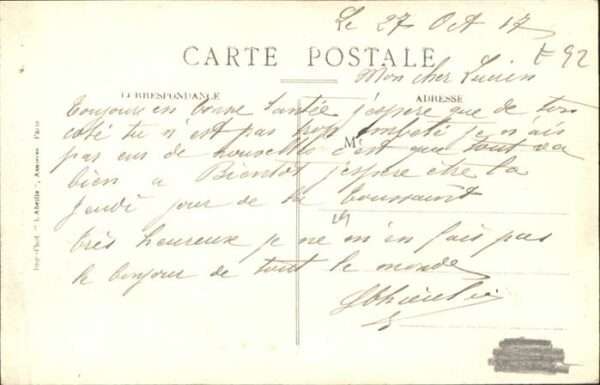 Le 27 Oct 17
E 92
CARTE POSTALE
Mon cher Lucien
CORRESPONDANCE
ADRESSE
Toujours en bonne Santée j'espere que de ton
coté tu n'est pas trop embeté je n'ais
M
pas eus de nouvelles c'est que tout va
bien a Bientot j'espere être la
Jeudi jour de la toussaint
très heureux je ne m'en fais pas
le bonjour de tout le monde